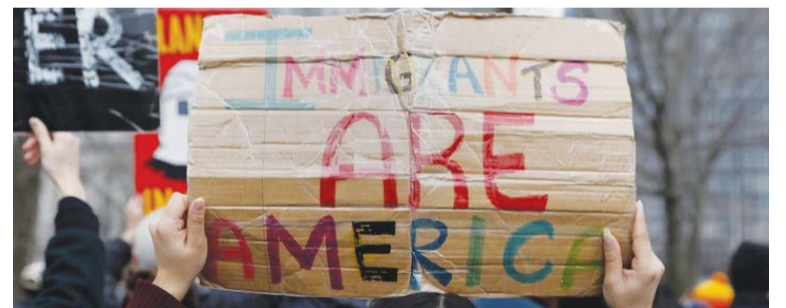 ER
LAN
IMMIGRANTS
ARE
AMERICA